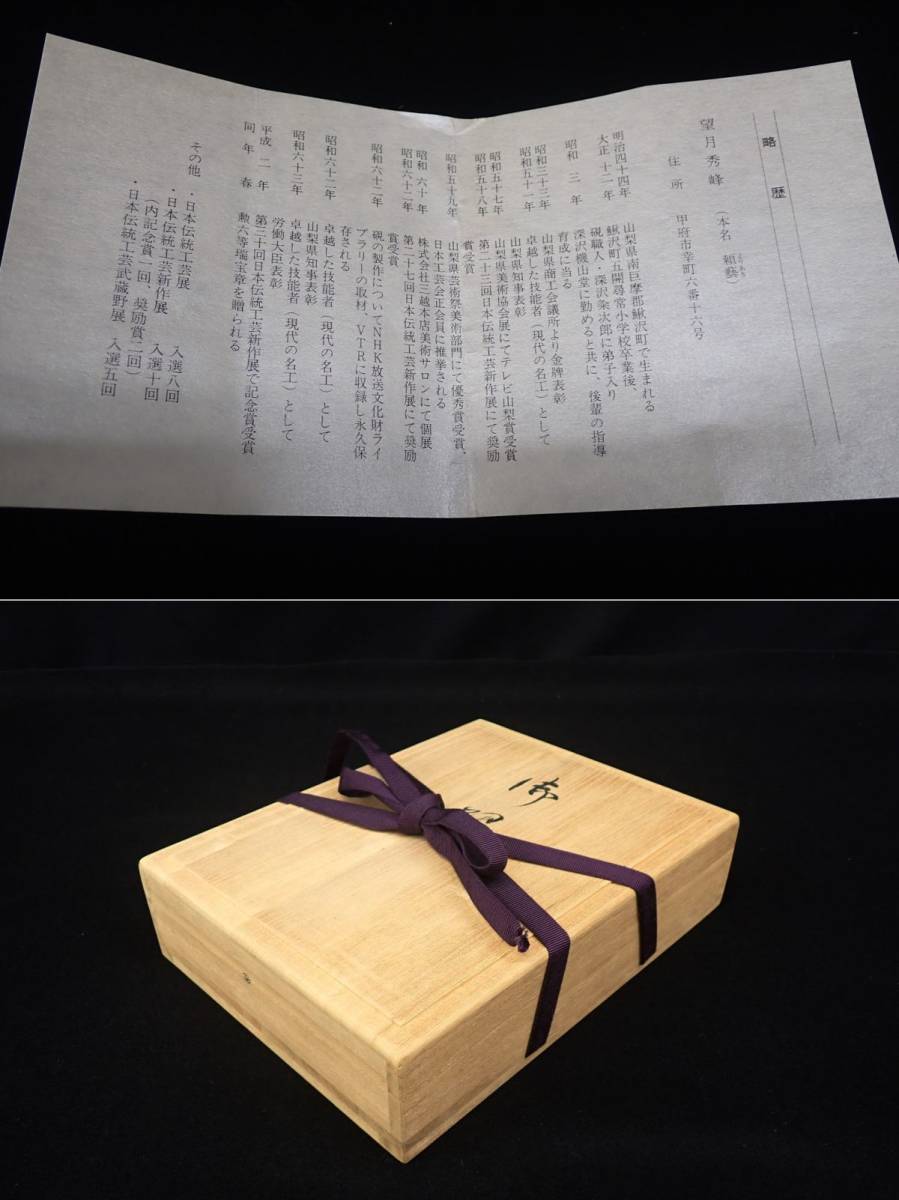 略歴
望月秀峰
(本名 頼藝)
住所 甲府市幸町六番十六号
明治四十四年 山梨県南巨摩郡鰍沢町で生まれる
大正十二年 鰍沢町五開尋常小学校卒業後、
硯職人・深沢粂次郎に弟子入り
昭和三年 深沢機山堂に勤めると共に、後輩の指導
育成に当る
昭和三十三年 山梨県商工会議所より金牌表彰
昭和五十一年 卓越した技能者(現代の名工)として
山梨県知事表彰
昭和五十七年 山梨県美術協会展にてテレビ山梨賞受賞
昭和五十八年 第二十三回日本伝統工芸新作展にて奨励
賞受賞
昭和五十九年 山梨県芸術祭美術部門にて優秀賞受賞、
日本工芸会正会員に推挙される
昭和六十年 株式会社三越本店美術サロンにて個展
昭和六十二年 第二十七回日本伝統工芸新作展にて奨励
賞受賞
昭和六十二年 硯の製作についてNHK放送文化財ライ
ブラリーの取材、VTRに収録し永久保
存される
昭和六十二年 卓越した技能者(現代の名工)として
山梨県知事表彰
昭和六十三年 卓越した技能者(現代の名工)として
労働大臣表彰
平成二年 第三十回日本伝統工芸新作展で記念賞受賞
同年春 勲六等瑞宝章を贈られる
その他 ・日本伝統工芸展 入選八回
・日本伝統工芸新作展 入選十回
(内記念賞一回、奨励賞二回)
・日本伝統工芸武蔵野展 入選五回